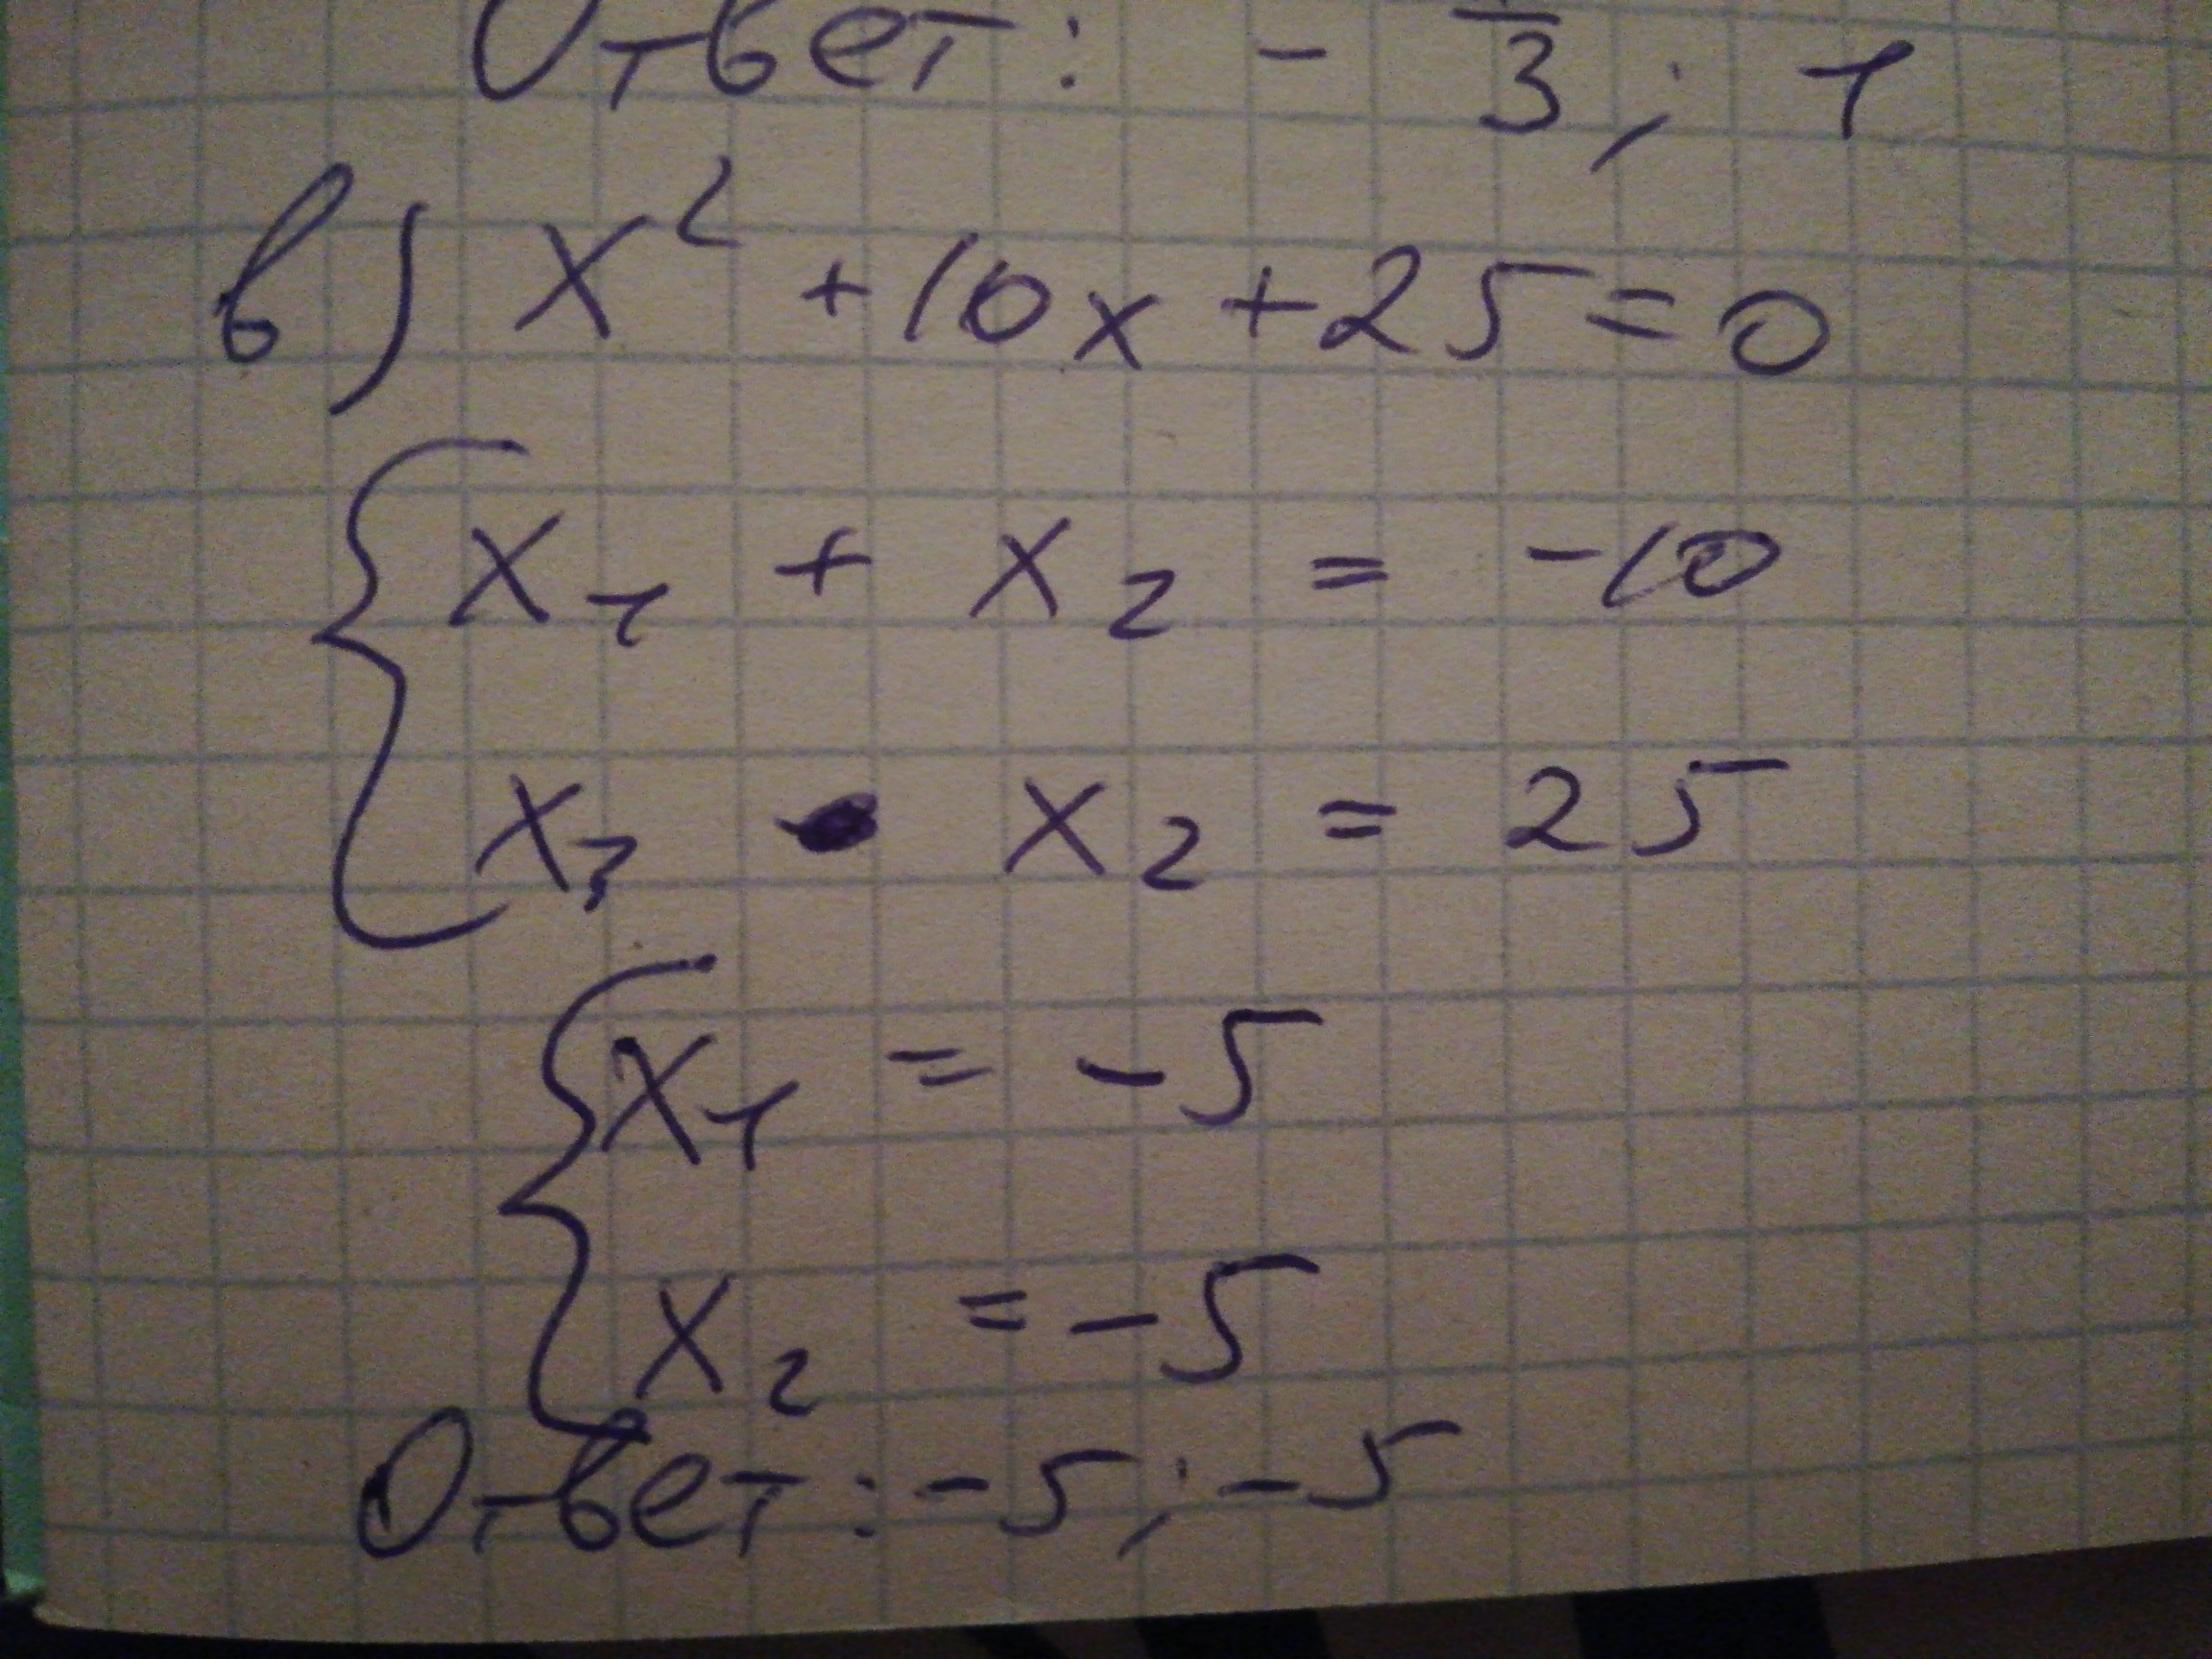 Ответ: - —/3 ; 1
в) x² + 10x + 25 = 0
{ x₁ + x₂ = -10
x₁ • x₂ = 25
{ x₁ = -5
x₂ = -5
Ответ: -5; -5